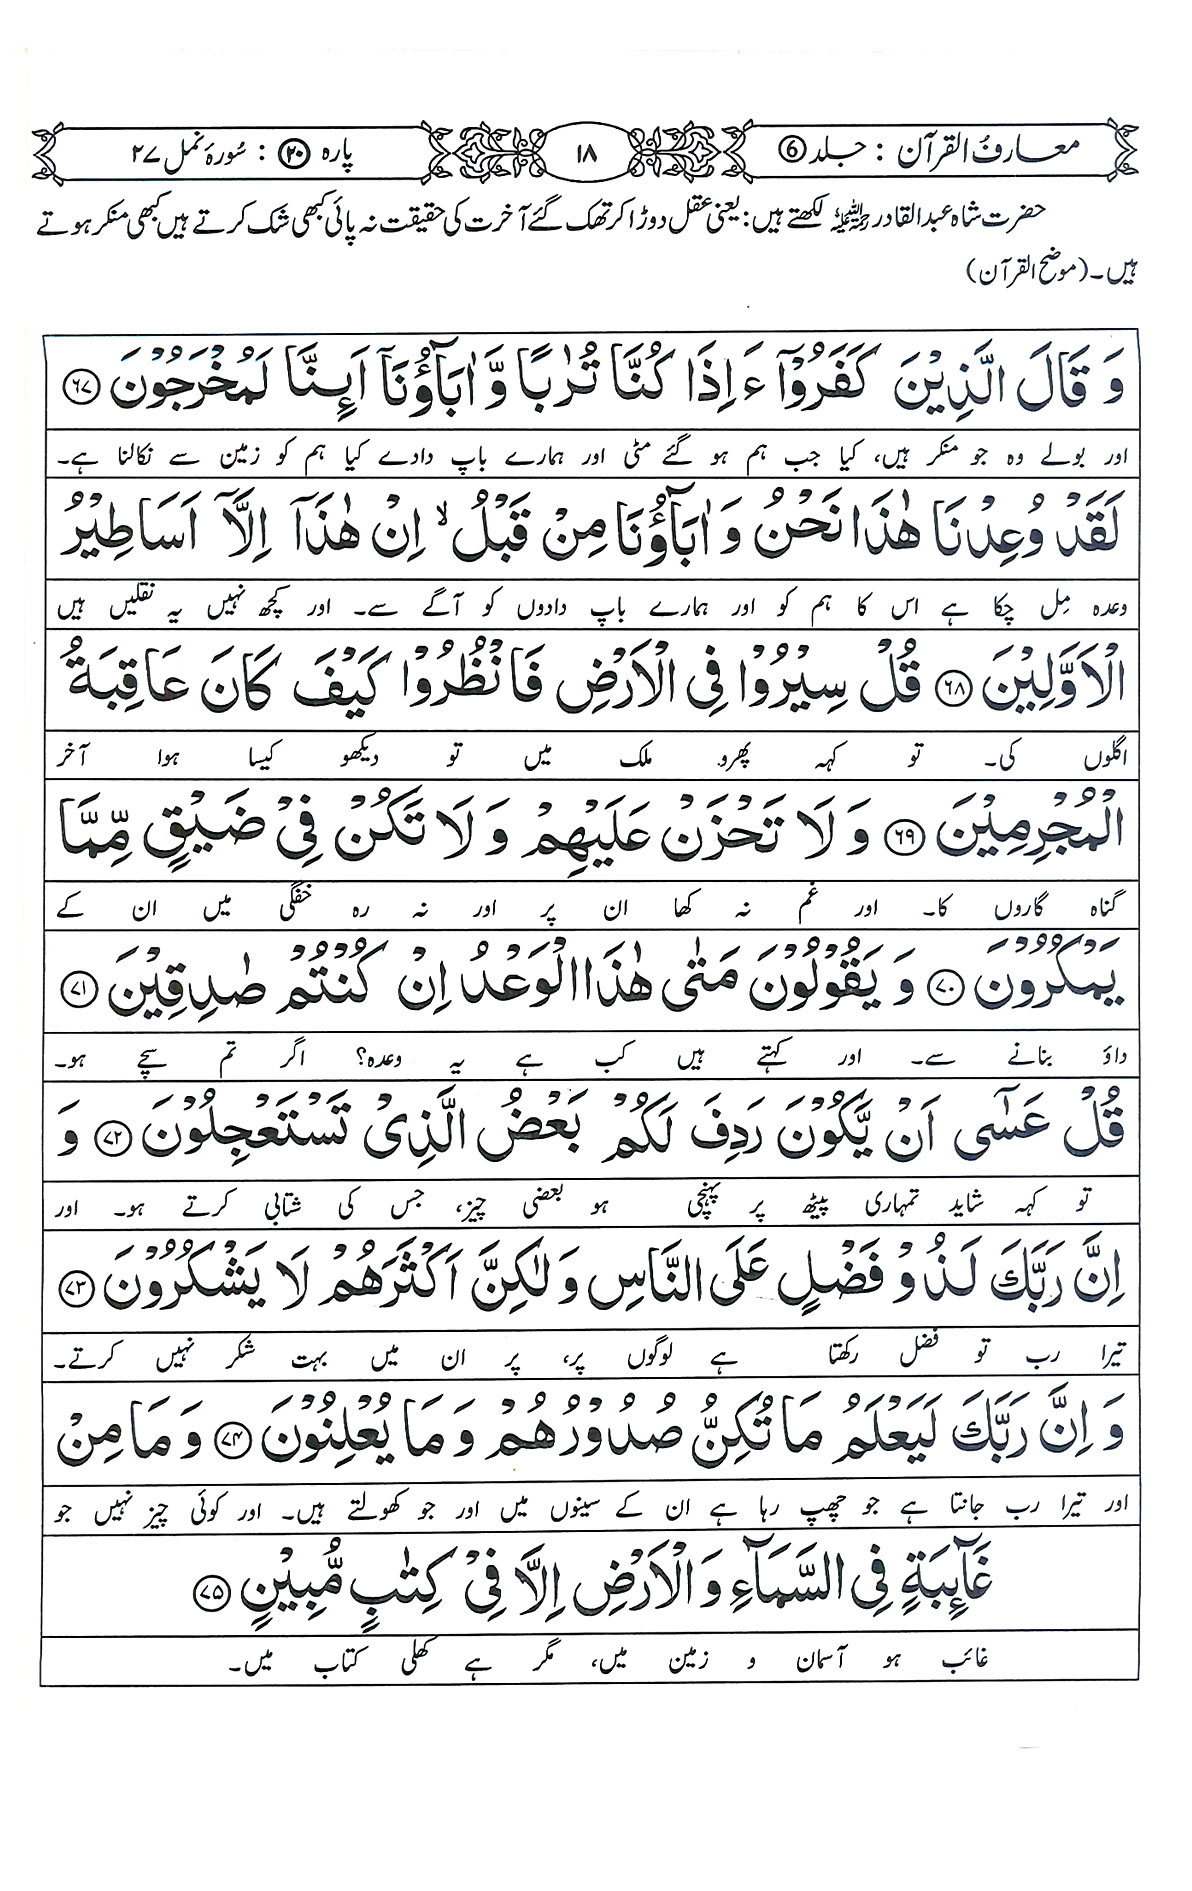 معارف القرآن : جلد ⑥
۱۸
پارہ ⑳ : سُورۂ نمل ۲۷
حضرت شاہ عبدالقادر رحمہ اللہ لکھتے ہیں: یعنی عقل دوڑا کر تھک گئے آخرت کی حقیقت نہ پائی کبھی شک کرتے ہیں کبھی منکر ہوتے
ہیں۔ (موضح القرآن)
وَ قَالَ الَّذِيْنَ كَفَرُوْۤا ءَ اِذَا كُنَّا تُرٰبًا وَّ اٰبَآؤُنَاۤ اَئِنَّا لَمُخْرَجُوْنَ ۶۷
اور بولے وہ جو منکر ہیں، کیا جب ہم ہو گئے مٹی اور ہمارے باپ دادے کیا ہم کو زمین سے نکالنا ہے۔
لَقَدْ وُعِدْنَا هٰذَا نَحْنُ وَ اٰبَآؤُنَا مِنْ قَبْلُ ۙ اِنْ هٰذَاۤ اِلَّاۤ اَسَاطِيْرُ
وعدہ مِل چکا ہے اس کا ہم کو اور ہمارے باپ دادوں کو آگے سے۔ اور کچھ نہیں یہ نقلیں ہیں
الْاَوَّلِيْنَ ۶۸ قُلْ سِيْرُوْا فِي الْاَرْضِ فَانْظُرُوْا كَيْفَ كَانَ عَاقِبَةُ
اگلوں کی۔ تو کہہ پھرو ملک میں تو دیکھو کیسا ہوا آخر
الْمُجْرِمِيْنَ ۶۹ وَ لَا تَحْزَنْ عَلَيْهِمْ وَ لَا تَكُنْ فِيْ ضَيْقٍ مِّمَّا
گناہ گاروں کا۔ اور غم نہ کھا ان پر اور نہ رہ خفگی میں ان کے
يَمْكُرُوْنَ ۷۰ وَ يَقُوْلُوْنَ مَتٰى هٰذَا الْوَعْدُ اِنْ كُنْتُمْ صٰدِقِيْنَ ۷۱
داؤ بنانے سے۔ اور کہتے ہیں کب ہے یہ وعدہ؟ اگر تم سچے ہو۔
قُلْ عَسٰۤى اَنْ يَّكُوْنَ رَدِفَ لَكُمْ بَعْضُ الَّذِيْ تَسْتَعْجِلُوْنَ ۷۲ وَ
تو کہہ شاید تمہاری پیٹھ پر پہنچی ہو بعضی چیز، جس کی شتابی کرتے ہو۔ اور
اِنَّ رَبَّكَ لَذُوْ فَضْلٍ عَلَى النَّاسِ وَ لٰكِنَّ اَكْثَرَهُمْ لَا يَشْكُرُوْنَ ۷۳
تیرا رب تو فضل رکھتا ہے لوگوں پر، پر ان میں بہت شکر نہیں کرتے۔
وَ اِنَّ رَبَّكَ لَيَعْلَمُ مَا تُكِنُّ صُدُوْرُهُمْ وَ مَا يُعْلِنُوْنَ ۷۴ وَ مَا مِنْ
اور تیرا رب جانتا ہے جو چھپ رہا ہے ان کے سینوں میں اور جو کھولتے ہیں۔ اور کوئی چیز نہیں جو
غَآئِبَةٍ فِي السَّمَآءِ وَ الْاَرْضِ اِلَّا فِيْ كِتٰبٍ مُّبِيْنٍ ۷۵
غائب ہو آسمان و زمین میں، مگر ہے کھلی کتاب میں۔